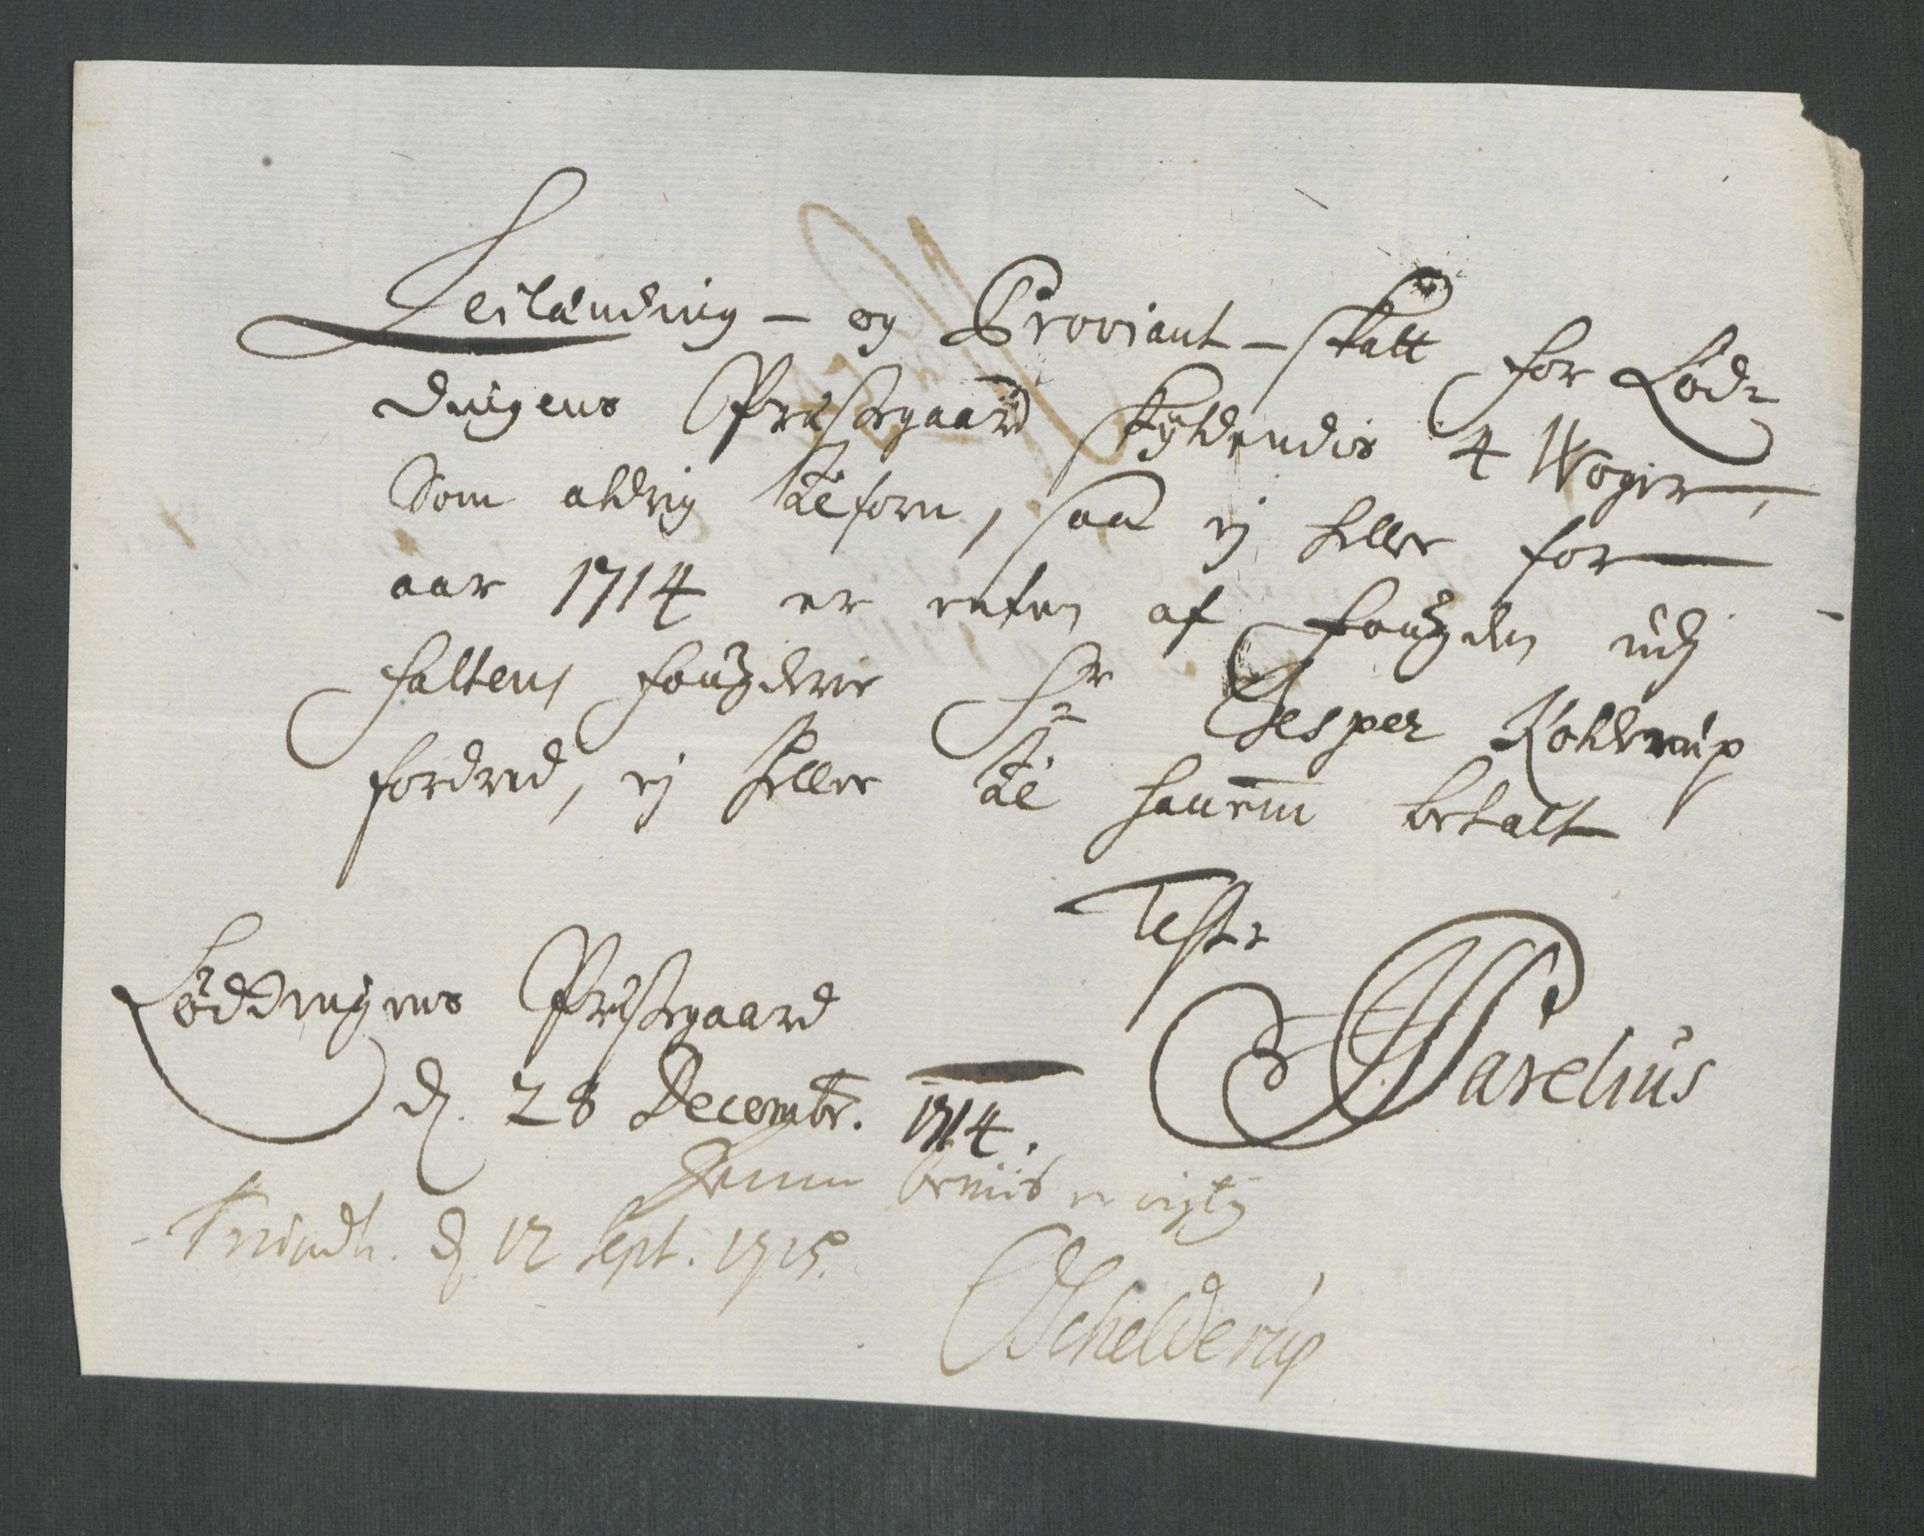 Leilænding- og Proviant-skatt for Lød-
dingens Præstegaard skyldendis 4 Woger,
Som aldrig tilforn, saa ej heller for
aar 1714 er enten af Fougden udj
Saltens Fougderie Sr Jesper Kolderup
fordred, ej heller til hannem betalt
Test:
Løddingens Præstegaard
d. 28 Decembr. 1714.
HWarelius
Denne beviis er rigtig
Trondh. d. 12 Sept. 1715.
Schelderup